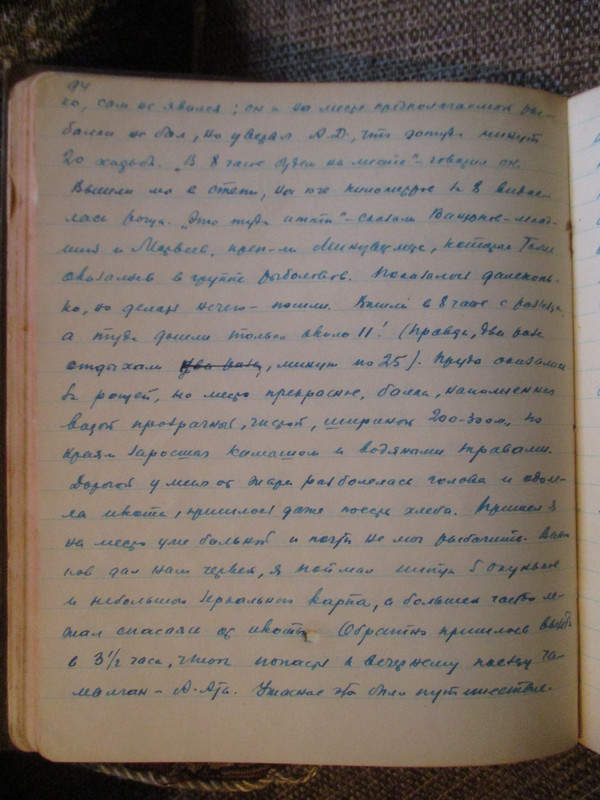 94
ко, сам не явился; он и на месте предполагаемой ры-
балки не был, но уверял А.Д., что оттуда минут
20 ходьбы. „В 8 часов будем на месте" – говорил он.
Вышли мы в степь, но уже километров за 8 видне-
лась роща. „Это туда итти" – сказали
и Медведев, , которые тоже
оказались в группе рыболовов. Показалось далеконь-
ко, но делать нечего – пошли. Вышли в 8 часов с разъезда,
а туда дошли только около 11! (Правда, два раза
отдыхали, минут по 25). Пруд оказался
за рощей, но место прекрасное, балка, наполненная
водой прозрачной, чистой, шириной 200-300 м, по
краям заросшая камышом и водяными травами.
Дорогой у меня от жары разболелась голова и одоле-
ла икота, пришлось даже поесть хлеба. Пришел я
на место уже больной и почти не мог рыбачить.
дал нам червей, я поймал штук 5 окуньков
и небольшого зеркального карпа, а большей частью ле-
жал спасаясь от икоты. Обратно пришлось выйти
в 3½ часа, чтобы попасть к вечернему поезду Ча-
малган – А-Ата. Ужасное это было путешествие.